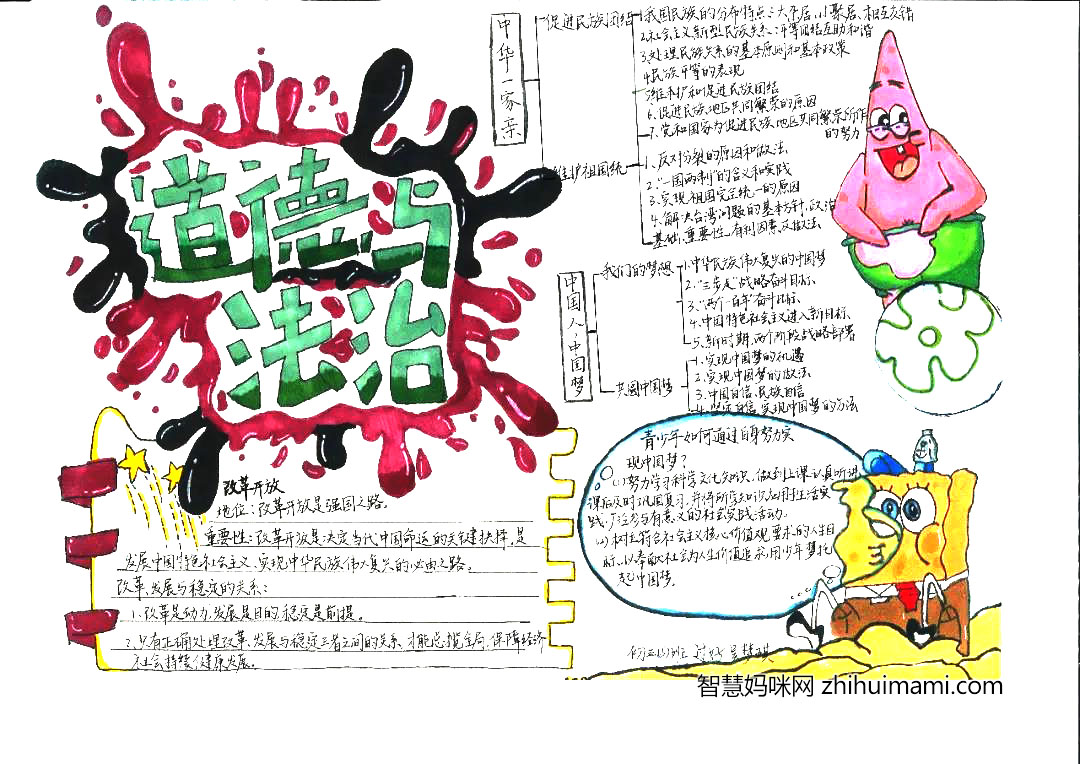 道德与
法治
中华一家亲
促进民族团结
1.我国民族的分布特点:大杂居、小聚居、相互交错
2.社会主义新型民族关系:平等团结互助和谐
3.处理民族关系的基本原则和基本政策
4.民族平等的表现
5.维护和促进民族团结
6.促进民族地区共同繁荣的原因
7.党和国家为促进民族地区共同繁荣所作
的努力
维护祖国统一
1.反对分裂的原因和做法
2.“一国两制”的含义和实践
3.实现祖国完全统一的原因
4.解决台湾问题的基本方针、政治
基础、重要性、有利因素及做法
中国人,中国梦
我们的梦想
1.中华民族伟大复兴的中国梦
2.“三步走”战略奋斗目标
3.“两个一百年”奋斗目标
4.中国特色社会主义进入新目标
5.新时期,两个阶段战略部署
共圆中国梦
1.实现中国梦的机遇
2.实现中国梦的做法
3.中国自信、民族自信
4.坚定自信,实现中国梦的方法
改革开放
地位:改革开放是强国之路。
重要性:改革开放是决定当代中国命运的关键抉择,是
发展中国特色社会主义、实现中华民族伟大复兴的必由之路。
改革、发展与稳定的关系:
1.改革是动力,发展是目的,稳定是前提。
2.只有正确处理改革、发展与稳定三者之间的关系,才能总揽全局,保障经济
社会持续健康发展。
青少年如何通过自身努力实
现中国梦?
(1)努力学习科学文化知识,做到上课认真听讲
课后及时巩固复习,并将所学知识应用于生活实
践,广泛参与有意义的社会实践活动。
(2)树立符合社会主义核心价值观要求的人生目
标,以奉献社会为人生价值追求,用少年梦托
起中国梦。
智慧妈咪网 zhihuimami.com